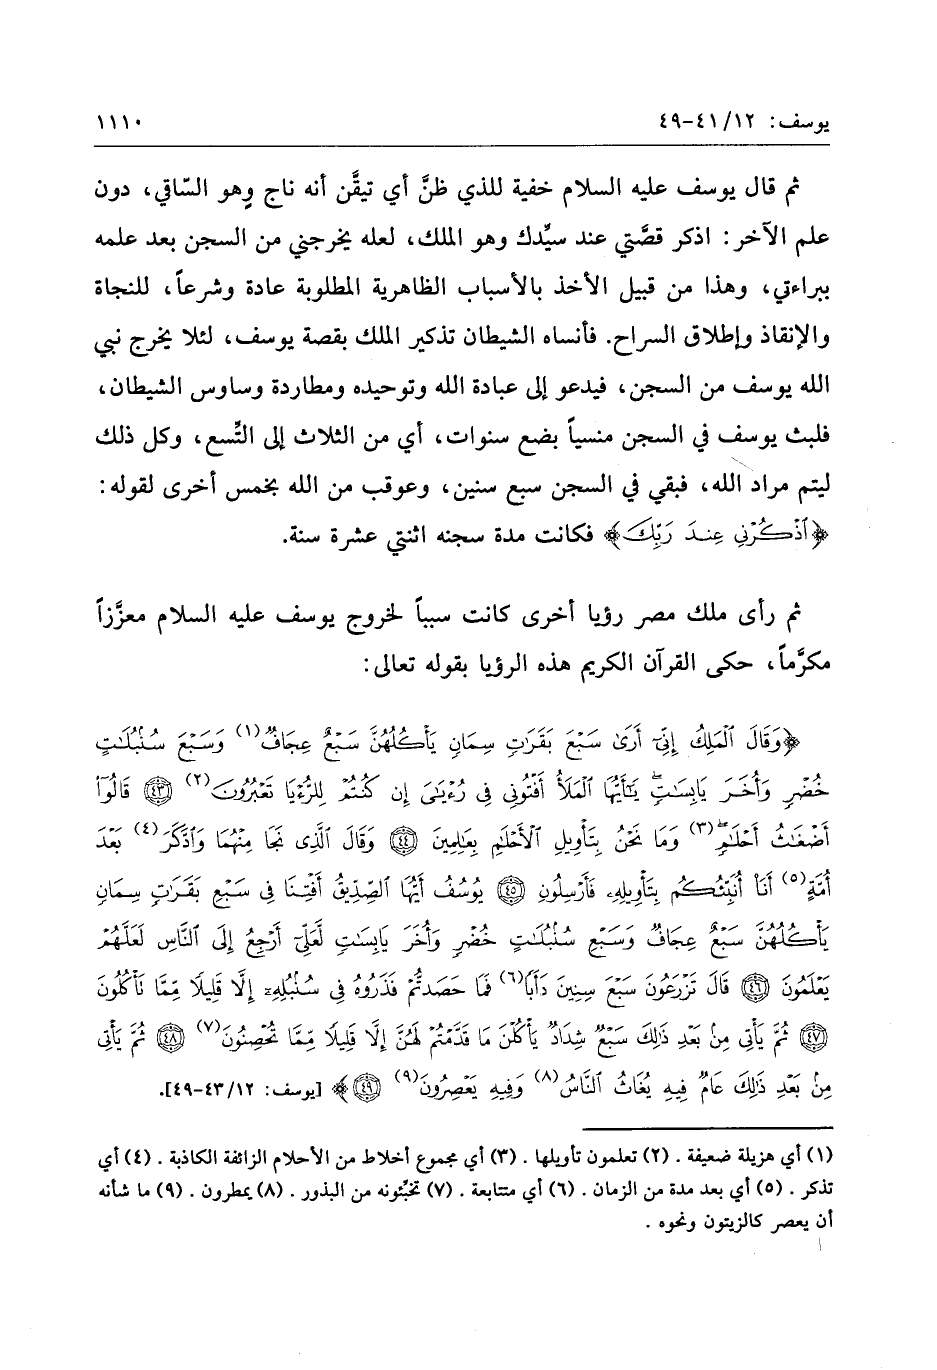 يوسف: ٤١/١٢-٤٩
١١١٠
ثم قال يوسف عليه السلام خفية للذي ظنَّ أي تيقَّن أنه ناج وهو السّاقي، دون
علم الآخر: اذكر قصَّتي عند سيِّدك وهو الملك، لعله يخرجني من السجن بعد علمه
ببراءتي، وهذا من قبيل الأخذ بالأسباب الظاهرية المطلوبة عادة وشرعاً، للنجاة
والإنقاذ وإطلاق السراح. فأنساه الشيطان تذكير الملك بقصة يوسف، لئلا يخرج نبي
الله يوسف من السجن، فيدعو إلى عبادة الله وتوحيده ومطاردة وساوس الشيطان،
فلبث يوسف في السجن منسياً بضع سنوات، أي من الثلاث إلى التِّسع، وكل ذلك
ليتم مراد الله، فبقي في السجن سبع سنين، وعوقب من الله بخمس أخرى لقوله:
﴿ٱذْكُرْنِي عِندَ رَبِّكَ﴾ فكانت مدة سجنه اثنتي عشرة سنة.
ثم رأى ملك مصر رؤيا أخرى كانت سبباً لخروج يوسف عليه السلام معزَّزاً
مكرَّماً، حكى القرآن الكريم هذه الرؤيا بقوله تعالى:
﴿وَقَالَ ٱلْمَلِكُ إِنِّيٓ أَرَىٰ سَبْعَ بَقَرَٰتٍ سِمَانٍ يَأْكُلُهُنَّ سَبْعٌ عِجَافٌ(١) وَسَبْعَ سُنۢبُلَٰتٍ
خُضْرٍ وَأُخَرَ يَابِسَٰتٍۖ يَٰٓأَيُّهَا ٱلْمَلَأُ أَفْتُونِي فِي رُءْيَٰيَ إِن كُنتُمْ لِلرُّءْيَا تَعْبُرُونَ(٢) ٤٣ قَالُوٓا۟
أَضْغَٰثُ أَحْلَٰمٍۖ(٣) وَمَا نَحْنُ بِتَأْوِيلِ ٱلْأَحْلَٰمِ بِعَٰلِمِينَ ٤٤ وَقَالَ ٱلَّذِي نَجَا مِنْهُمَا وَٱدَّكَرَ(٤) بَعْدَ
أُمَّةٍ(٥) أَنَا۠ أُنَبِّئُكُم بِتَأْوِيلِهِۦ فَأَرْسِلُونِ ٤٥ يُوسُفُ أَيُّهَا ٱلصِّدِّيقُ أَفْتِنَا فِي سَبْعِ بَقَرَٰتٍ سِمَانٍ
يَأْكُلُهُنَّ سَبْعٌ عِجَافٌ وَسَبْعِ سُنۢبُلَٰتٍ خُضْرٍ وَأُخَرَ يَابِسَٰتٍ لَّعَلِّيٓ أَرْجِعُ إِلَى ٱلنَّاسِ لَعَلَّهُمْ
يَعْلَمُونَ ٤٦ قَالَ تَزْرَعُونَ سَبْعَ سِنِينَ دَأَبًا(٦) فَمَا حَصَدتُّمْ فَذَرُوهُ فِي سُنۢبُلِهِۦٓ إِلَّا قَلِيلًا مِّمَّا تَأْكُلُونَ
٤٧ ثُمَّ يَأْتِي مِنۢ بَعْدِ ذَٰلِكَ سَبْعٌ شِدَادٌ يَأْكُلْنَ مَا قَدَّمْتُمْ لَهُنَّ إِلَّا قَلِيلًا مِّمَّا تُحْصِنُونَ(٧) ٤٨ ثُمَّ يَأْتِي
مِنۢ بَعْدِ ذَٰلِكَ عَامٌ فِيهِ يُغَاثُ ٱلنَّاسُ(٨) وَفِيهِ يَعْصِرُونَ(٩) ٤٩﴾ [يوسف: ٤٣/١٢-٤٩].
(١) أي هزيلة ضعيفة. (٢) تعلمون تأويلها. (٣) أي مجموع أخلاط من الأحلام الزائفة الكاذبة. (٤) أي
تذكر. (٥) أي بعد مدة من الزمان. (٦) أي متتابعة. (٧) تخبِّئونه من البذور. (٨) يمطرون. (٩) ما شأنه
أن يعصر كالزيتون ونحوه.